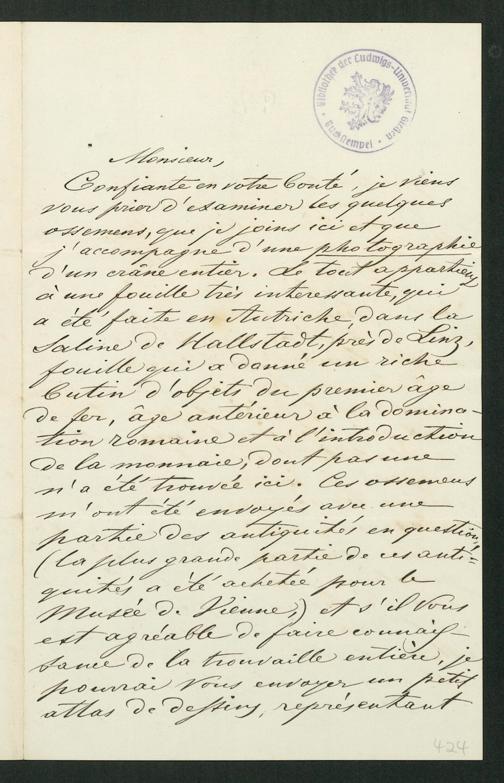 Bibliothek der Ludwigs-Universität Gießen
Monsieur,
Confiante en votre bonté, je viens
vous prier d'examiner les quelques
ossemens, que je joins ici et que
j'accompagne d'une photographie
d'un crâne entier. Le tout appartient
à une fouille très interessante, qui
a été faite en Autriche, dans la
Saline de Hallstadt, près de Linz,
fouille qui a donné un riche
butin d'objets du premier age
de fer, âge antérieur à la domina-
tion romaine et à l'introduction
de la monnaie, dont pas une
n'a été trouvée ici. Ces ossemens
m'ont été envoyés avec une
partie des antiquités en question,
(la plus grande partie de ces anti-
quités a été achetée pour le
Musée de Vienne,) et s'il Vous
est agréable de faire connais-
sance de la trouvaille entière, je
pourrai Vous envoyer un petit
atlas de dessins, représentant
424